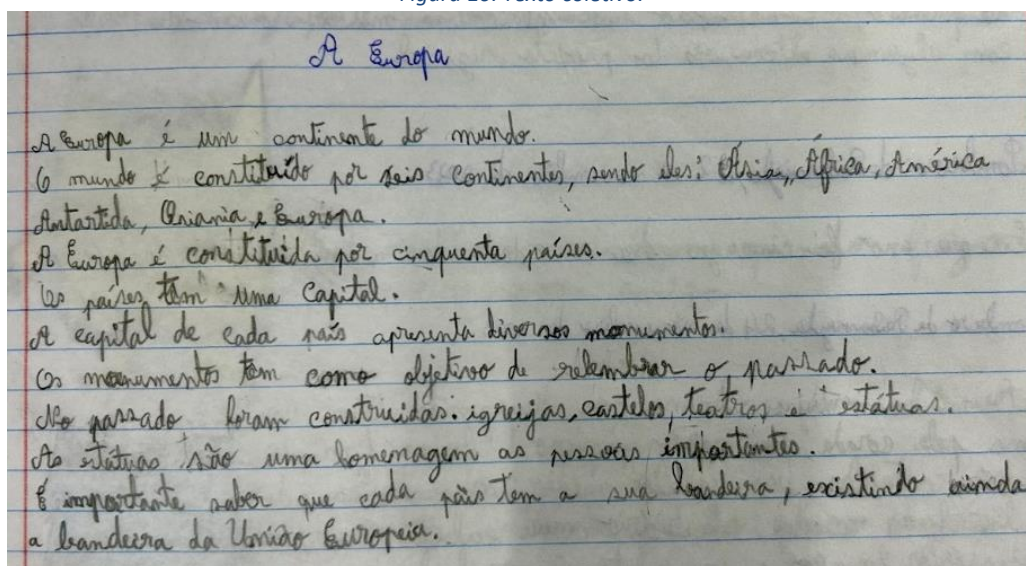 Figura 10. Texto coletivo.
A Europa
A Europa é um continente do mundo.
O mundo é constituído por seis continentes, sendo eles: Ásia, África, América
Antartida, Oniania, e Europa.
A Europa é constituída por cinquenta países.
Os países têm uma Capital.
A capital de cada país apresenta diversos monumentos.
Os monumentos têm como objetivo de relembrar o passado.
No passado foram construidas: igreijas, castelos, teatros e estátuas.
As státuas são uma homenagem as pessoas importantes.
É importante saber que cada país tem a sua bandeira, existindo ainda
a bandeira da União Europeia.